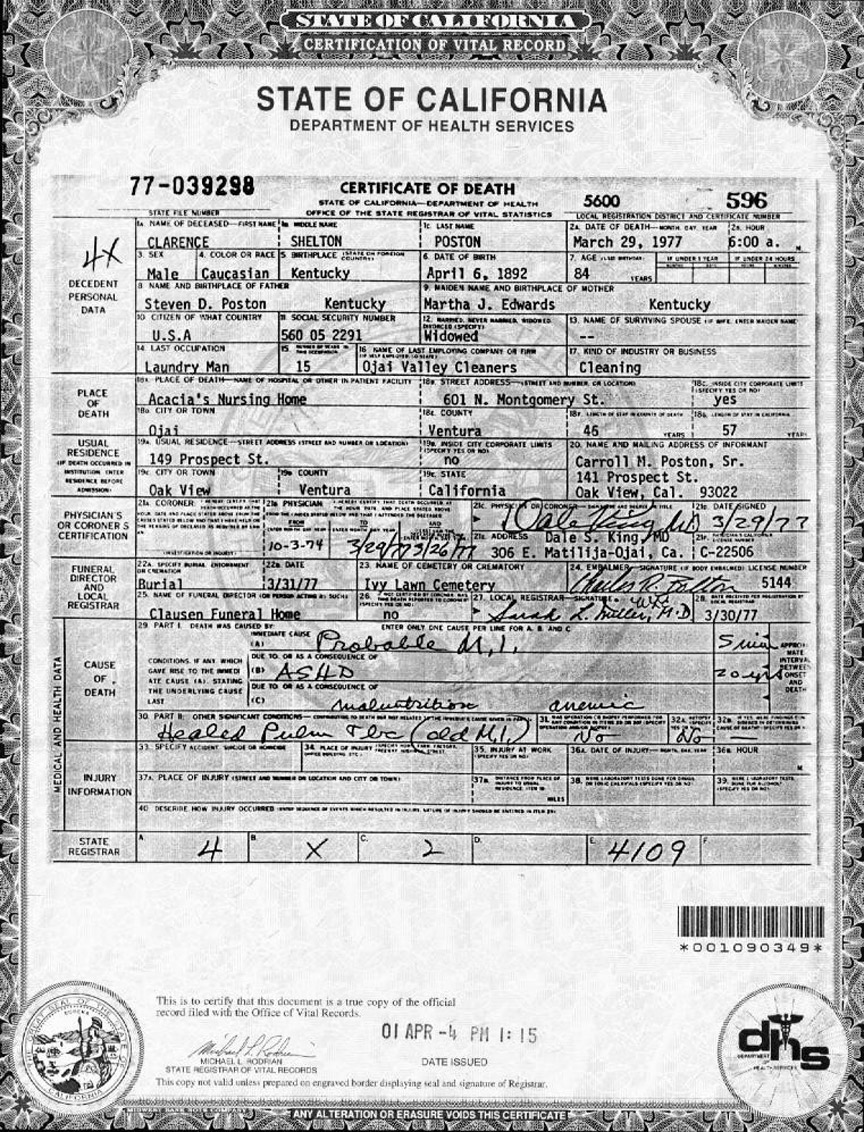 STATE OF CALIFORNIA
CERTIFICATION OF VITAL RECORD
STATE OF CALIFORNIA
DEPARTMENT OF HEALTH SERVICES
77-039298
CERTIFICATE OF DEATH
STATE OF CALIFORNIA—DEPARTMENT OF HEALTH
OFFICE OF THE STATE REGISTRAR OF VITAL STATISTICS
STATE FILE NUMBER
5600 596
LOCAL REGISTRATION DISTRICT AND CERTIFICATE NUMBER
4X
DECEDENT PERSONAL DATA
1A. NAME OF DECEASED—FIRST NAME 1B. MIDDLE NAME 1C. LAST NAME 2A. DATE OF DEATH—MONTH, DAY, YEAR 2B. HOUR
CLARENCE SHELTON POSTON March 29, 1977 6:00 a. M
3. SEX 4. COLOR OR RACE 5. BIRTHPLACE (STATE OR FOREIGN COUNTRY) 6. DATE OF BIRTH 7. AGE (LAST BIRTHDAY) IF UNDER 1 YEAR IF UNDER 24 HOURS
Male Caucasian Kentucky April 6, 1892 84 YEARS
8. NAME AND BIRTHPLACE OF FATHER 9. MAIDEN NAME AND BIRTHPLACE OF MOTHER
Steven D. Poston Kentucky Martha J. Edwards Kentucky
10. CITIZEN OF WHAT COUNTRY 11. SOCIAL SECURITY NUMBER 12. MARRIED, NEVER MARRIED, WIDOWED, DIVORCED (SPECIFY) 13. NAME OF SURVIVING SPOUSE (IF WIFE, ENTER MAIDEN NAME)
U.S.A 560 05 2291 Widowed --
14. LAST OCCUPATION 15. NUMBER OF YEARS IN THIS OCCUPATION 16. NAME OF LAST EMPLOYING COMPANY OR FIRM 17. KIND OF INDUSTRY OR BUSINESS
Laundry Man 15 Ojai Valley Cleaners Cleaning
PLACE OF DEATH
18A. PLACE OF DEATH—NAME OF HOSPITAL OR OTHER IN-PATIENT FACILITY 18B. STREET ADDRESS—(STREET AND NUMBER, OR LOCATION) 18C. INSIDE CITY CORPORATE LIMITS (SPECIFY YES OR NO)
Acacia's Nursing Home 601 N. Montgomery St. yes
18D. CITY OR TOWN 18E. COUNTY 18F. LENGTH OF STAY IN COUNTY OF DEATH 18G. LENGTH OF STAY IN CALIFORNIA
Ojai Ventura 46 YEARS 57 YEARS
USUAL RESIDENCE
(IF DEATH OCCURRED IN INSTITUTION ENTER RESIDENCE BEFORE ADMISSION)
19A. USUAL RESIDENCE—STREET ADDRESS (STREET AND NUMBER OR LOCATION) 19B. INSIDE CITY CORPORATE LIMITS (SPECIFY YES OR NO) 20. NAME AND MAILING ADDRESS OF INFORMANT
149 Prospect St. no Carroll M. Poston, Sr.
19C. CITY OR TOWN 19D. COUNTY 19E. STATE 141 Prospect St.
Oak View Ventura California Oak View, Cal. 93022
PHYSICIAN'S OR CORONER'S CERTIFICATION
21A. CORONER: 21B. PHYSICIAN 21C. PHYSICIAN OR CORONER—SIGNATURE AND DEGREE OR TITLE 21D. DATE SIGNED
Dale King MD 3/29/77
FROM TO AND
10-3-74 3/29/77 3/26/77
21E. ADDRESS Dale S. King, MD
306 E. Matilija-Ojai, Ca. C-22506
FUNERAL DIRECTOR AND LOCAL REGISTRAR
22A. SPECIFY BURIAL, ENTOMBMENT OR CREMATION 22B. DATE 23. NAME OF CEMETERY OR CREMATORY 24. EMBALMER—SIGNATURE (IF BODY EMBALMED) LICENSE NUMBER
Burial 3/31/77 Ivy Lawn Cemetery Charles R. Fulton 5144
25. NAME OF FUNERAL DIRECTOR (OR PERSON ACTING AS SUCH) 26. 27. LOCAL REGISTRAR—SIGNATURE 28.
Clausen Funeral Home no Sarah L. Miller, M.D 3/30/77
MEDICAL AND HEALTH DATA
CAUSE OF DEATH
29. PART I. DEATH WAS CAUSED BY: ENTER ONLY ONE CAUSE PER LINE FOR A, B, AND C
IMMEDIATE CAUSE
(A) Probable M.I. 5 min
CONDITIONS, IF ANY, WHICH GAVE RISE TO THE IMMEDIATE CAUSE (A), STATING THE UNDERLYING CAUSE LAST
DUE TO, OR AS A CONSEQUENCE OF
(B) ASHD 20 yrs
DUE TO, OR AS A CONSEQUENCE OF
(C) malnutrition anemic
APPROXIMATE INTERVAL BETWEEN ONSET AND DEATH
30. PART II: OTHER SIGNIFICANT CONDITIONS— 31. 32A. 32B.
Healed Pulm Tbc (old M.I.) No No —
INJURY INFORMATION
33. SPECIFY ACCIDENT, SUICIDE OR HOMICIDE 34. PLACE OF INJURY 35. INJURY AT WORK (SPECIFY YES OR NO) 36A. DATE OF INJURY—MONTH, DAY, YEAR 36B. HOUR
M.
37A. PLACE OF INJURY (STREET AND NUMBER OR LOCATION AND CITY OR TOWN) 37B. DISTANCE FROM PLACE OF INJURY TO USUAL RESIDENCE MILES 38. 39.
40. DESCRIBE HOW INJURY OCCURRED
STATE REGISTRAR
A. B. C. D. E. F.
4 X 2 4109
*001090349*
This is to certify that this document is a true copy of the official
record filed with the Office of Vital Records.
01 APR -4 PM 1:15
MICHAEL L. RODRIAN
STATE REGISTRAR OF VITAL RECORDS
DATE ISSUED
This copy not valid unless prepared on engraved border displaying seal and signature of Registrar.
dhs
DEPARTMENT HEALTH SERVICES
MIDWEST BANK NOTE COMPANY
ANY ALTERATION OR ERASURE VOIDS THIS CERTIFICATE